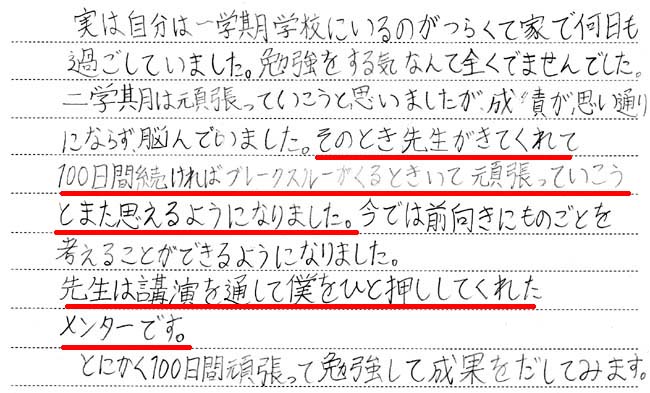 実は自分は一学期学校にいるのがつらくて家で何日も
過ごしていました。勉強をする気なんて全くでませんでした。
二学期は頑張っていこうと思いましたが、成績が思い通り
にならず、脳んでいました。そのとき先生がきてくれて
100日間続ければブレークスルーがくるときいて頑張っていこう
とまた思えるようになりました。今では前向きにものごとを
考えることができるようになりました。
先生は講演を通して僕をひと押ししてくれた
メンターです。
とにかく100日間頑張って勉強して成果をだしてみます。